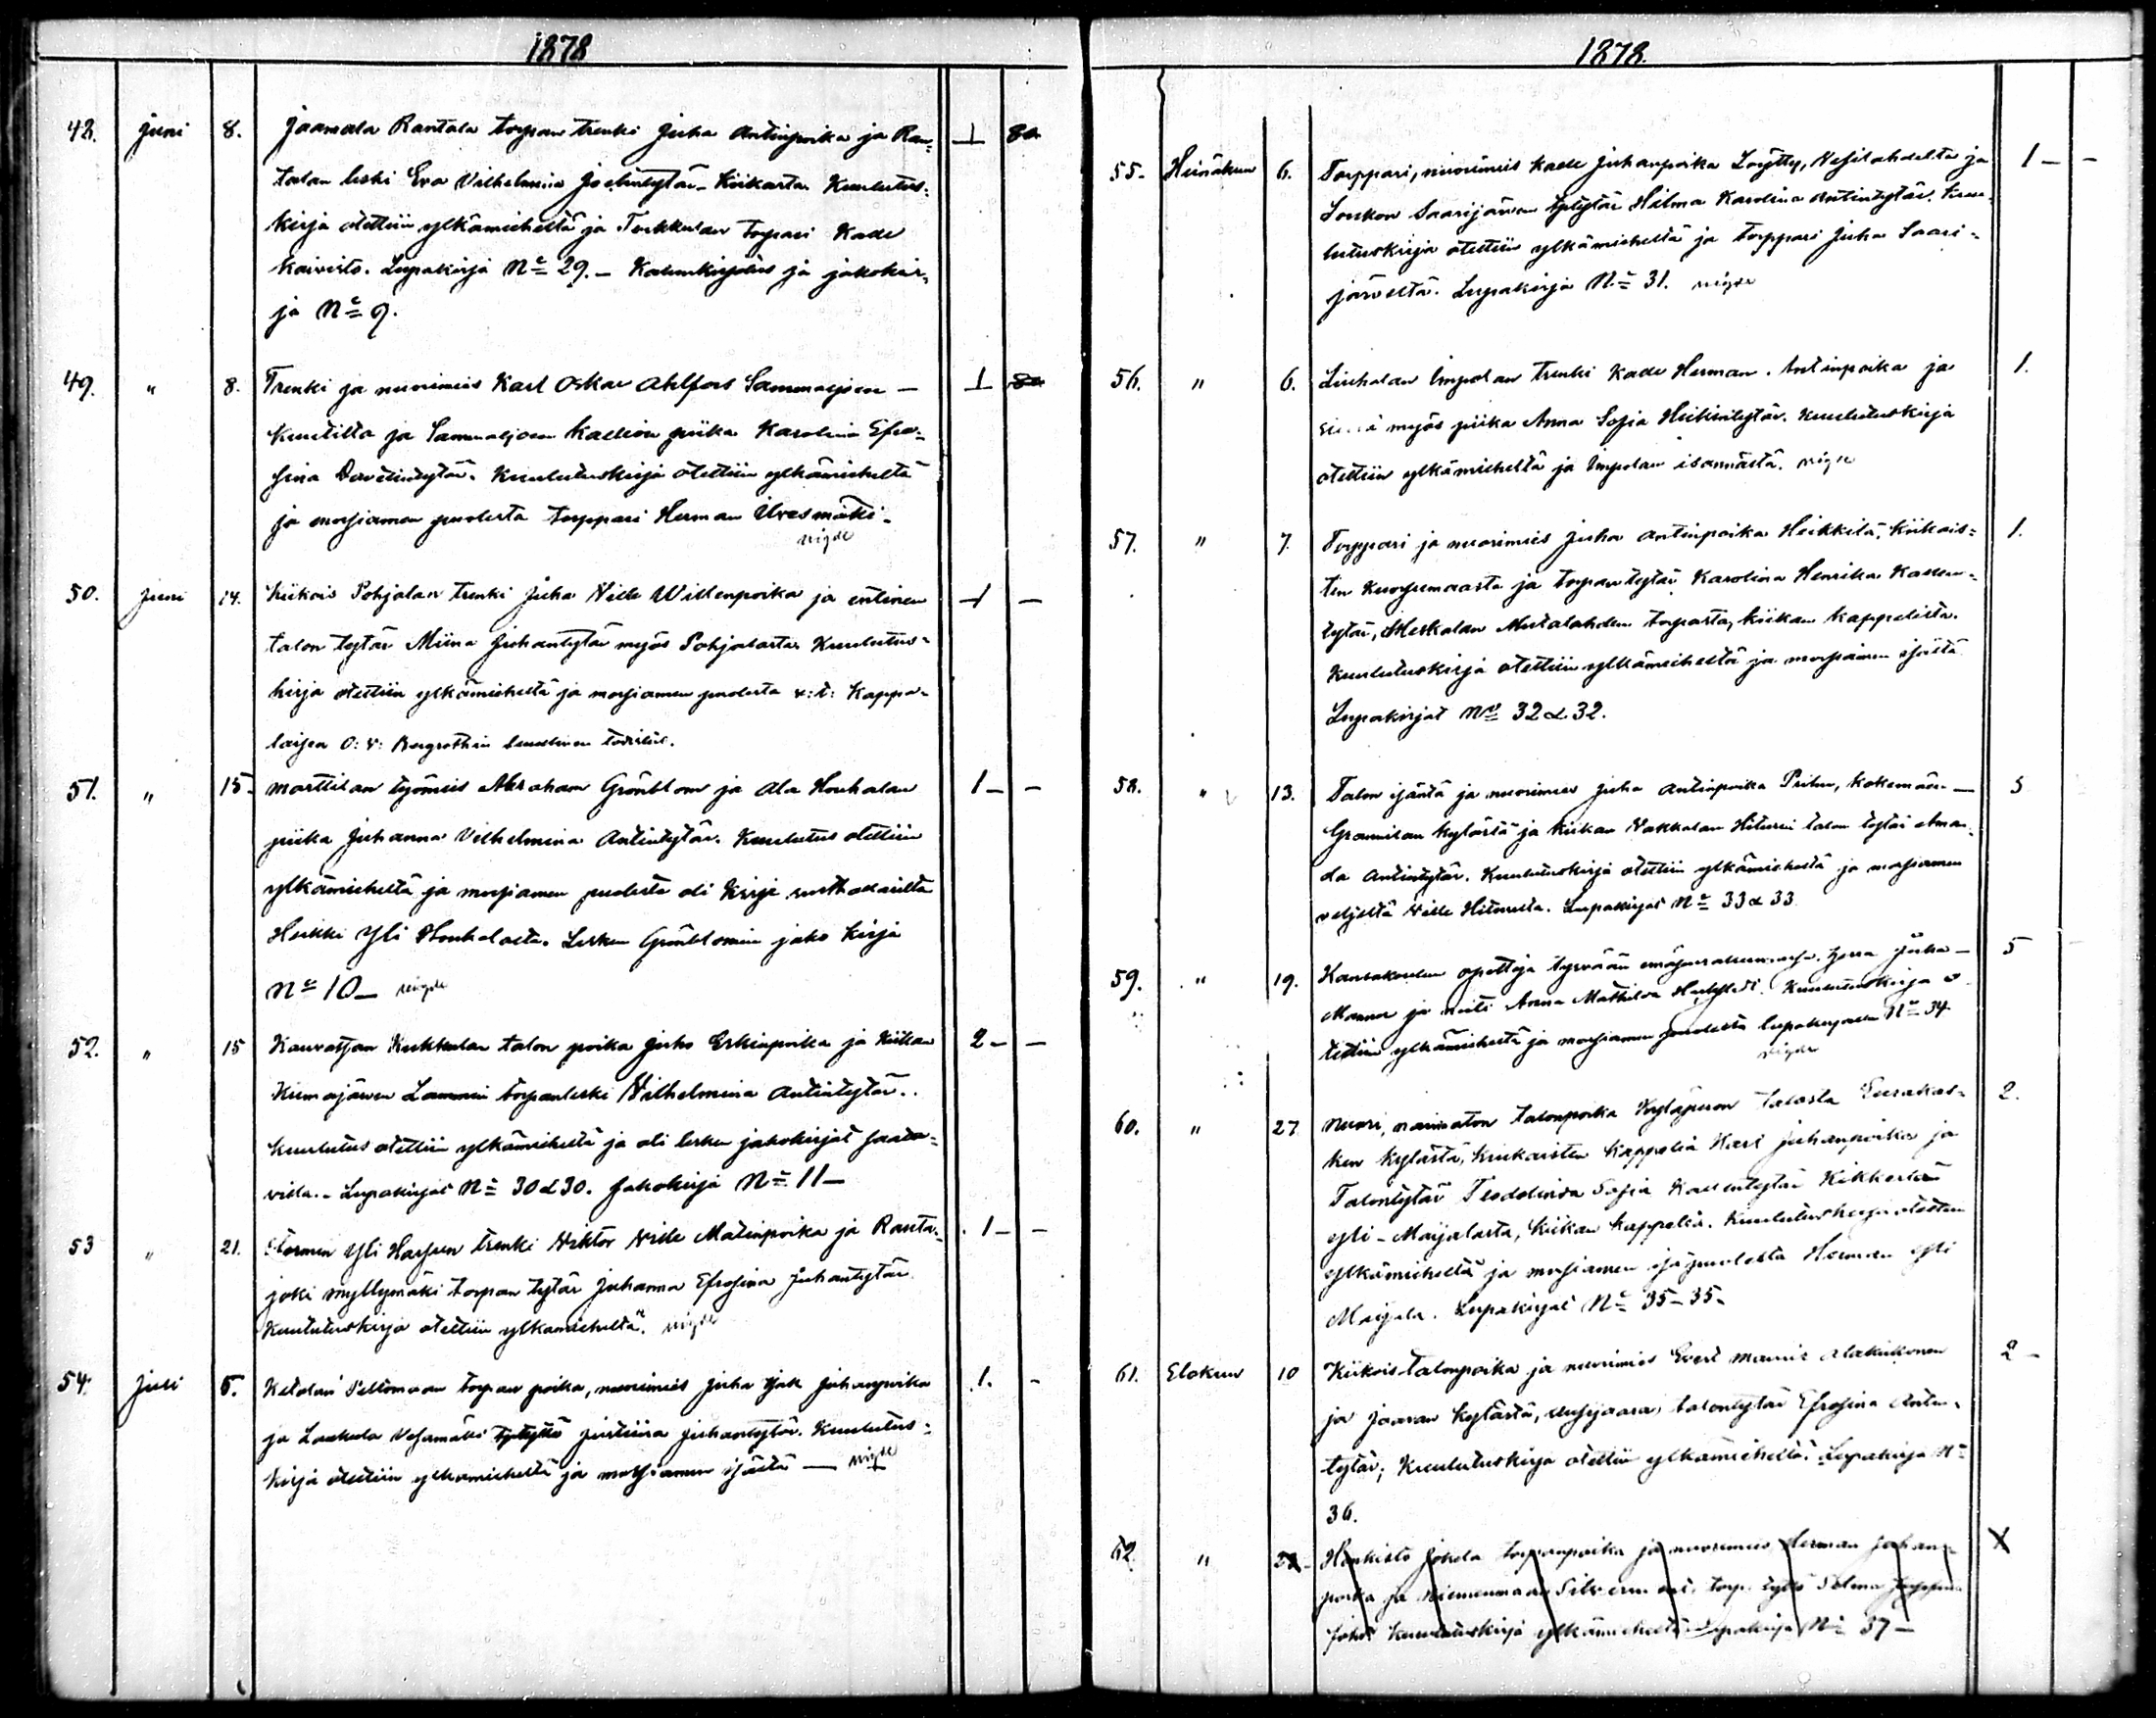 1878
48. Juni 8. Jaamala Rantala torpan trenki Juha Antinpoika ja Ran-
talan leski Eva Vilhelmiina Joelintytär Kiikasta. Kuulutus-
kirja otettiin ylkämieheltä ja Torkkulan torpari Kalle
Koivisto. Lupakirja No 29. – Kalunkirjoitus ja jakokir-
ja No 9.
1 80
49. " 8. Trenki ja nuorimies Karl Oskar Ahlfors Sammaljoen –
Kuutilta ja Sammaljoen Kallion piika Karolina Efro-
sina Davidintytär. Kuulutuskirja otettiin ylkämieheltä
ja morsiamen puolesta torppari Herman Uvesmäki.
vigde
1 80
50. Juni 14. Kiikois Pohjalan trenki Juha Ville Villenpoika ja entinen
talon tytär Miina Juhantytär myös Pohjalasta. Kuulutus-
kirja otettiin ylkämieheltä ja morsiamen puolesta v: t: Kappa-
laisen O: V: Bergrothin todistus.
1 –
51. " 15. Marttilan työmies Abraham Grönblom ja Ala Houhalan
piika Juhanna Vilhelmina Antintytär. Kuulutus otettiin
ylkämieheltä ja morsiamen puolesta oli kirje rusthollarilta
Heikki Yli Houhalasta. Lesken Grönblomin jako kirja
No 10 – vigde
1 – –
52. " 15 Kauvatsan Kukkulan talon poika Juho Erkinpoika ja Kiikan
Kiimajärven Lammin torpanleski Vilhelmina Antintytär.
Kuulutus otettiin ylkämieheltä ja oli lesken jakokirjat saata-
villa. – Lupakirjat No 30 & 30. Jakokirja No 11 –
2 – –
53 " 21. Stormin Yli Harjun trenki Viktor Ville Matinpoika ja Ranta-
joki myllymäki torpan tytär Juhanna Efrosina Juhantytär
Kuulutuskirja otettiin ylkämieheltä. vigde
1 – –
54. Juli 5. Ketolan Peltomaan torpan poika, nuorimies Juha Isak Juhanpoika
ja Laukula Vesamäki Justiina Juhantytär. Kuulutus-
kirja otettiin ylkämieheltä ja morsiamen isältä – vigde
1. –
1878.
55. Heinäkuu 6. Torppari, nuorimies Kalle Juhanpoika Löytty, Vesilahdelta ja
Soukon Saarijärven tptytär Hilma Karolina Antintytär. Kuu-
lutuskirja otettiin ylkämieheltä ja torppari Juha Saari-
järveltä. Lupakirja No 31. vigde
1 – –
56. " 6. Liuhalan Impolan trenki Kalle Herman Antinpoika ja
myös piika Anna Sofia Heikintytär. Kuulutuskirja
otettiin ylkämieheltä ja Impolan isännästä. vigde
1.
57. " 7. Torppari ja nuorimies Juha Antinpoika Heikkilä, Kiikois-
ten Kuorsumaasta ja torpan tytär Karolina Henrika Kallen-
tytär, Meskalan Mustalahden torpasta, Kiikan kappelista.
Kuulutuskirja otettiin ylkämieheltä ja morsiamen isältä
Lupakirjat No 32 & 32.
1.
58. " 13. Talon isäntä ja nuorimies Juha Antinpoika Prihu, Kokemäen –
kylästä ja Kiikan Vakkalan Hiturin talon tytär Aman-
da Antintytär. Kuulutuskirja otettiin ylkämieheltä ja morsiamen
veljeltä Ville Hiturilta. Lupakirjat No 33 & 33
5
59. " 19. Kansakoulun opettaja Tyrvään herra Juha –
Manner ja neiti Anna Mathilda. Kuulutuskirja o-
tettiin ylkämieheltä ja morsiamen puolesta lupakirjalla No 34
vigde
5
60. " 27. Nuori, naimaton talonpoika Kyläpuron talosta Eurakos-
ken kylästä, Kiukaisten Kappelia Karl Juhanpoika ja
Talontytär Teodolinda Sofia Kallentytär Kikkerlän
Yli-Maijalasta, Kiikan kappelia. Kuulutuskirja otettiin
ylkämieheltä ja morsiamen isäpuolesta Herman Yli
Maijala. Lupakirjat No 35–35.
2.
61. Elokuu 10 Kiikois talonpoika ja nuorimies Evert Mauriz Alakukonen
ja Jaaran kylästä, Uusijaara, talontytär Efrosina Antin-
tytär, Kuulutuskirja otettiin ylkämieheltä. Lupakirja No
36.
2 –
62. " Honkisto Jokela torpanpoika ja nuorimies Herman Juhan-
poika ja Niemenmaan torp. tyttö Selma
Kuulutuskirja ylkämieheltä Lupakirja No 37 –
X